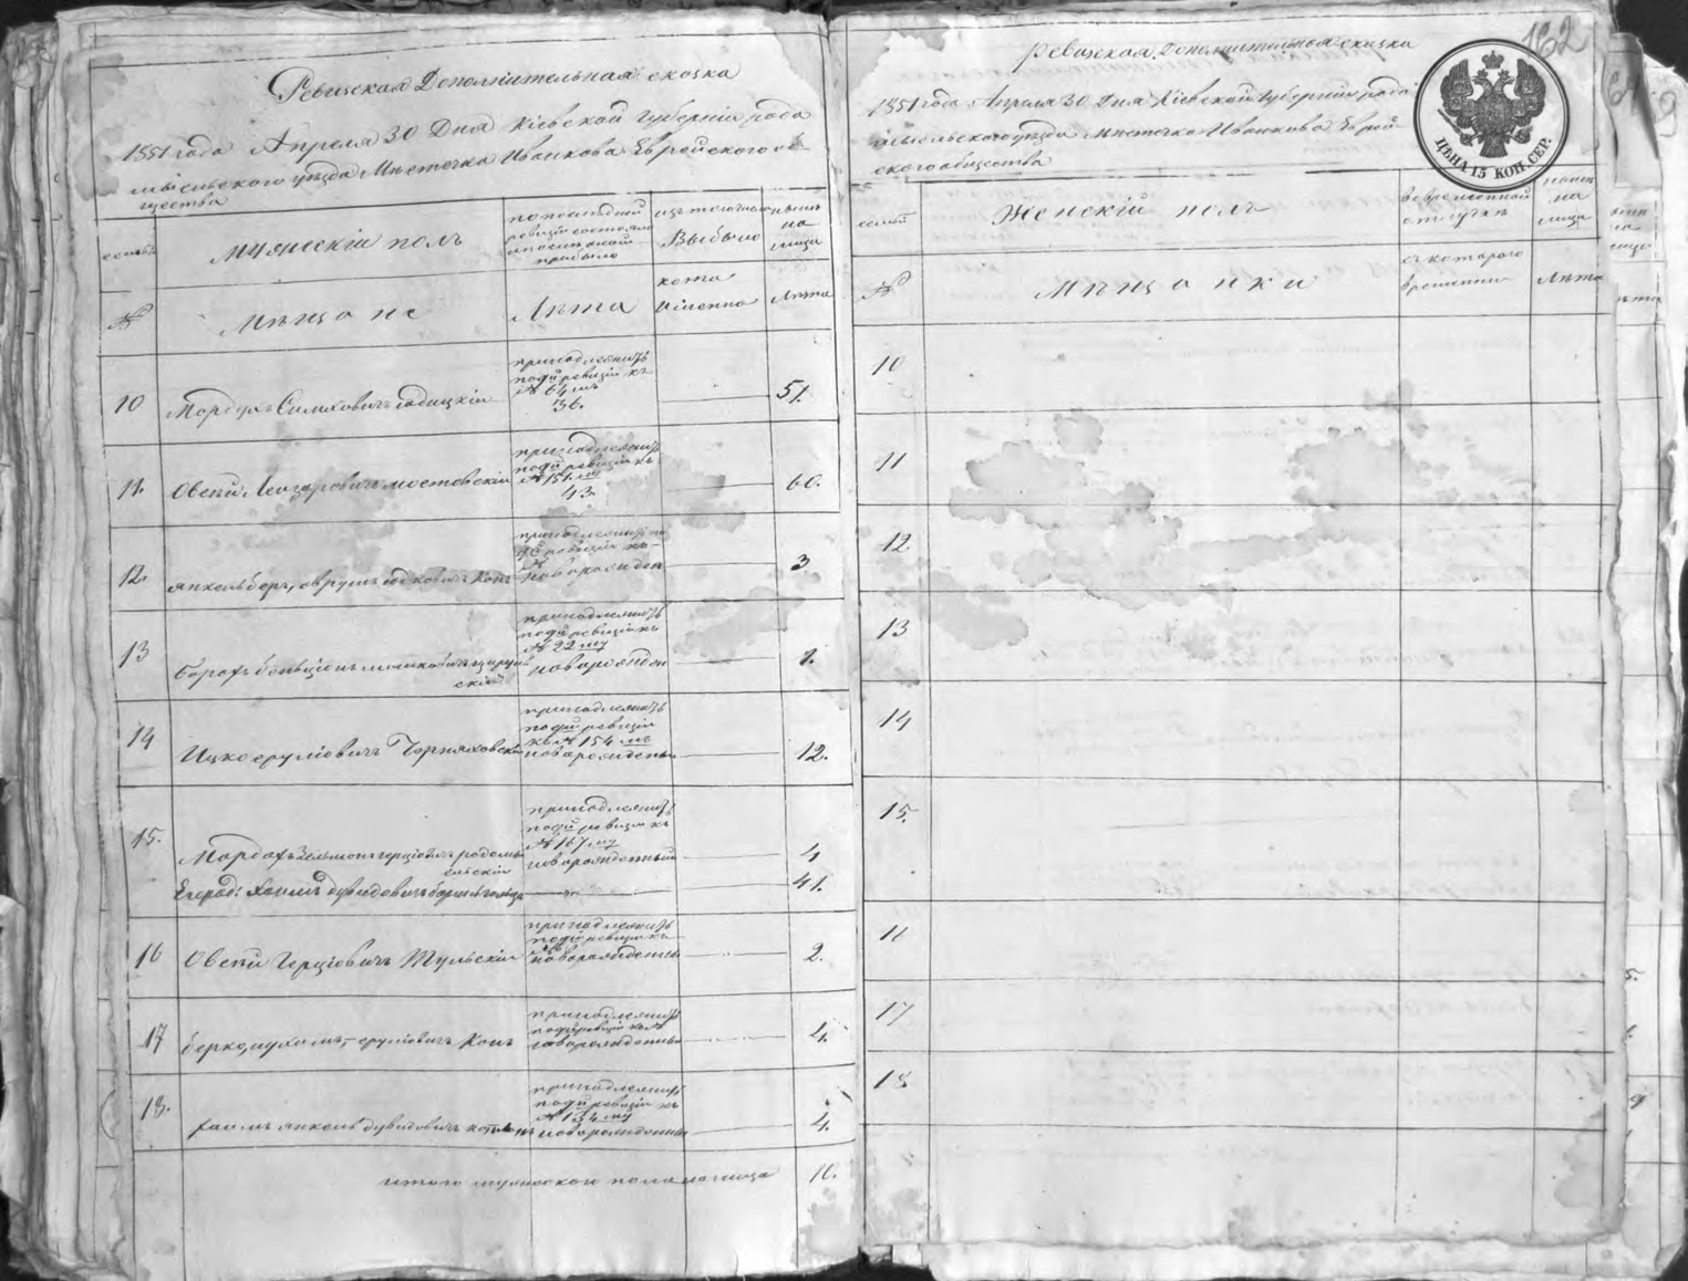 Ревизская Дополнительная сказка
1851 года Апреля 30 Дня Кіевской Губерніи радо
мысльского уѣзда Мѣстечка Иванкова Еврейского об
щества
семьи
Мужескій полъ
по последней
ревизіи состояло
и после оной
прибыло
изъ того числа
Выбыло
нынѣ
на
лицо
№
Мѣщане
Лѣта
когда
Именно
Лѣта
10
Мордухъ Симховичъ
принадлежитъ
по 9й ревизіи къ
№ 64 мъ
36.
51.
11.
Овсей Лейзеровичъ мостовскій
принадлежитъ
по 9й ревизіи къ
№ 151. му
43.
60.
12.
Янкель беръ, аврумъ Конъ
принадлежитъ по
ревизіи къ
№
новорожден
3
13
мошковичъ
скій
принадлежитъ
по 9й ревизіи къ
№ 22 му
новорожден
1.
14
Ицко сруліовичъ Чорняховскій
принадлежитъ
по 9й ревизіи
къ № 154 мъ
новорожденны
12.
15.
Мордохъ Зельманъ герціовичъ радомы
сльскій
принадлежитъ
по 9й ревизіи къ
№ 167 му
новорожденный
4
Хаимъ дувидовичъ
41.
16
Овсей Герціовичъ Тульскій
принадлежитъ
по 9й ревизіи къ
№
новорожденны
2.
17
берко, нухимъ, сруліовичъ Конъ
принадлежитъ
по 9й ревизіи къ №
новорожденны
4.
18.
хаимъ янкель дувидовичъ
принадлежитъ
по 9й ревизіи къ
№ 134 му
новорожденны
4.
итого мужеского пола на лицо
11.
162
Ревизская Дополнительная сказка
1851 года Апреля 30 Дня Кіевской Губерніи радо
мысльского уѣзда Мѣстечка Иванкова Еврей
ского общества
ЦѢНА 15 КОП. СЕР.
семьи
Женскій полъ
во временной
отлучкѣ
нынѣ
на
лицо
№
Мѣщанки
съ которого
времени
Лѣта
10
11
12
13
14
15.
16
17
18